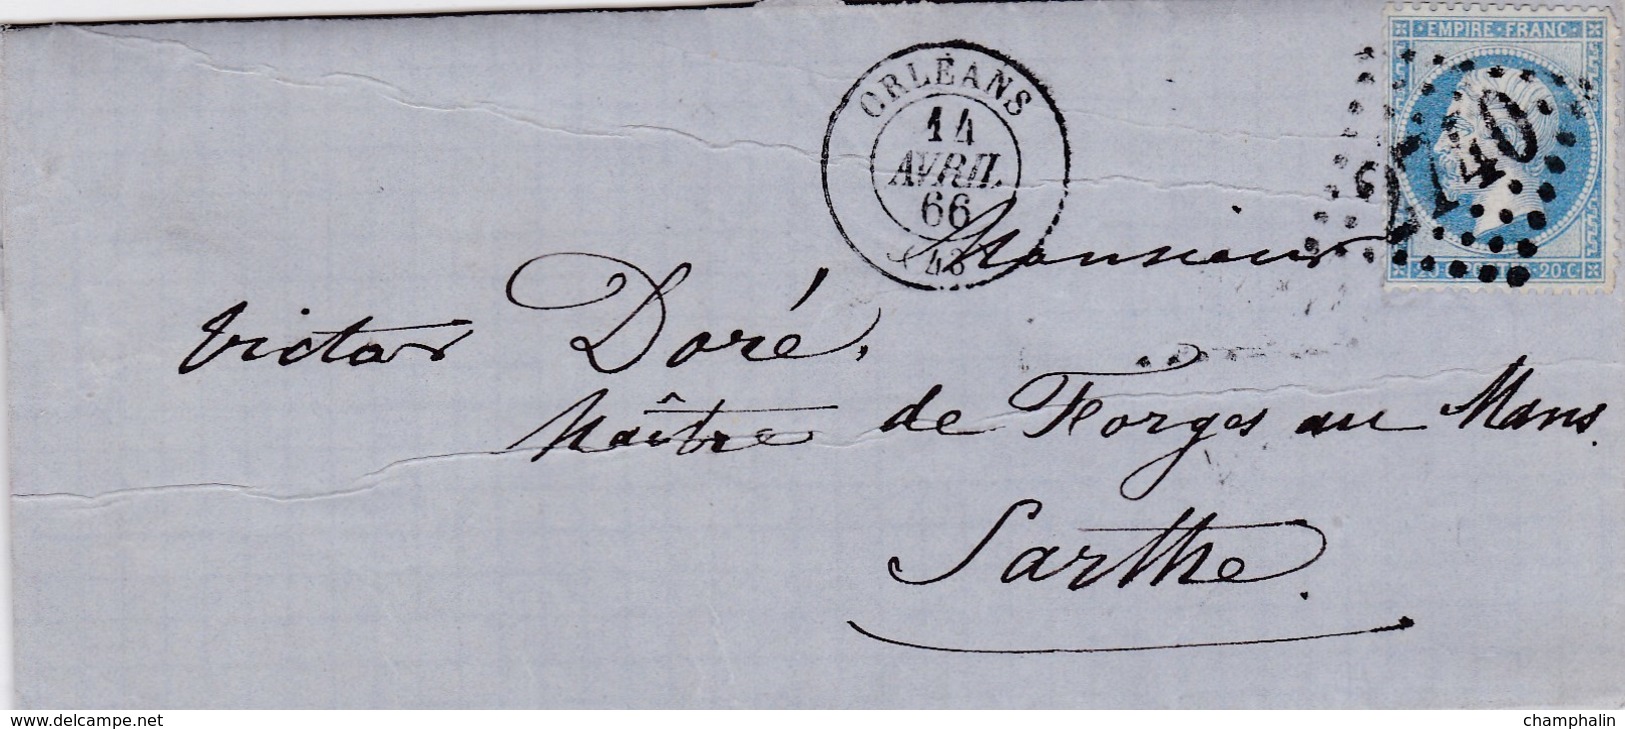 EMPIRE FRANC
2740
20 · C
ORLÉANS
14
AVRIL
66
Monsieur
Victor Doré,
Maître de Forges au Mans.
Sarthe.
www.delcampe.net
champhalin